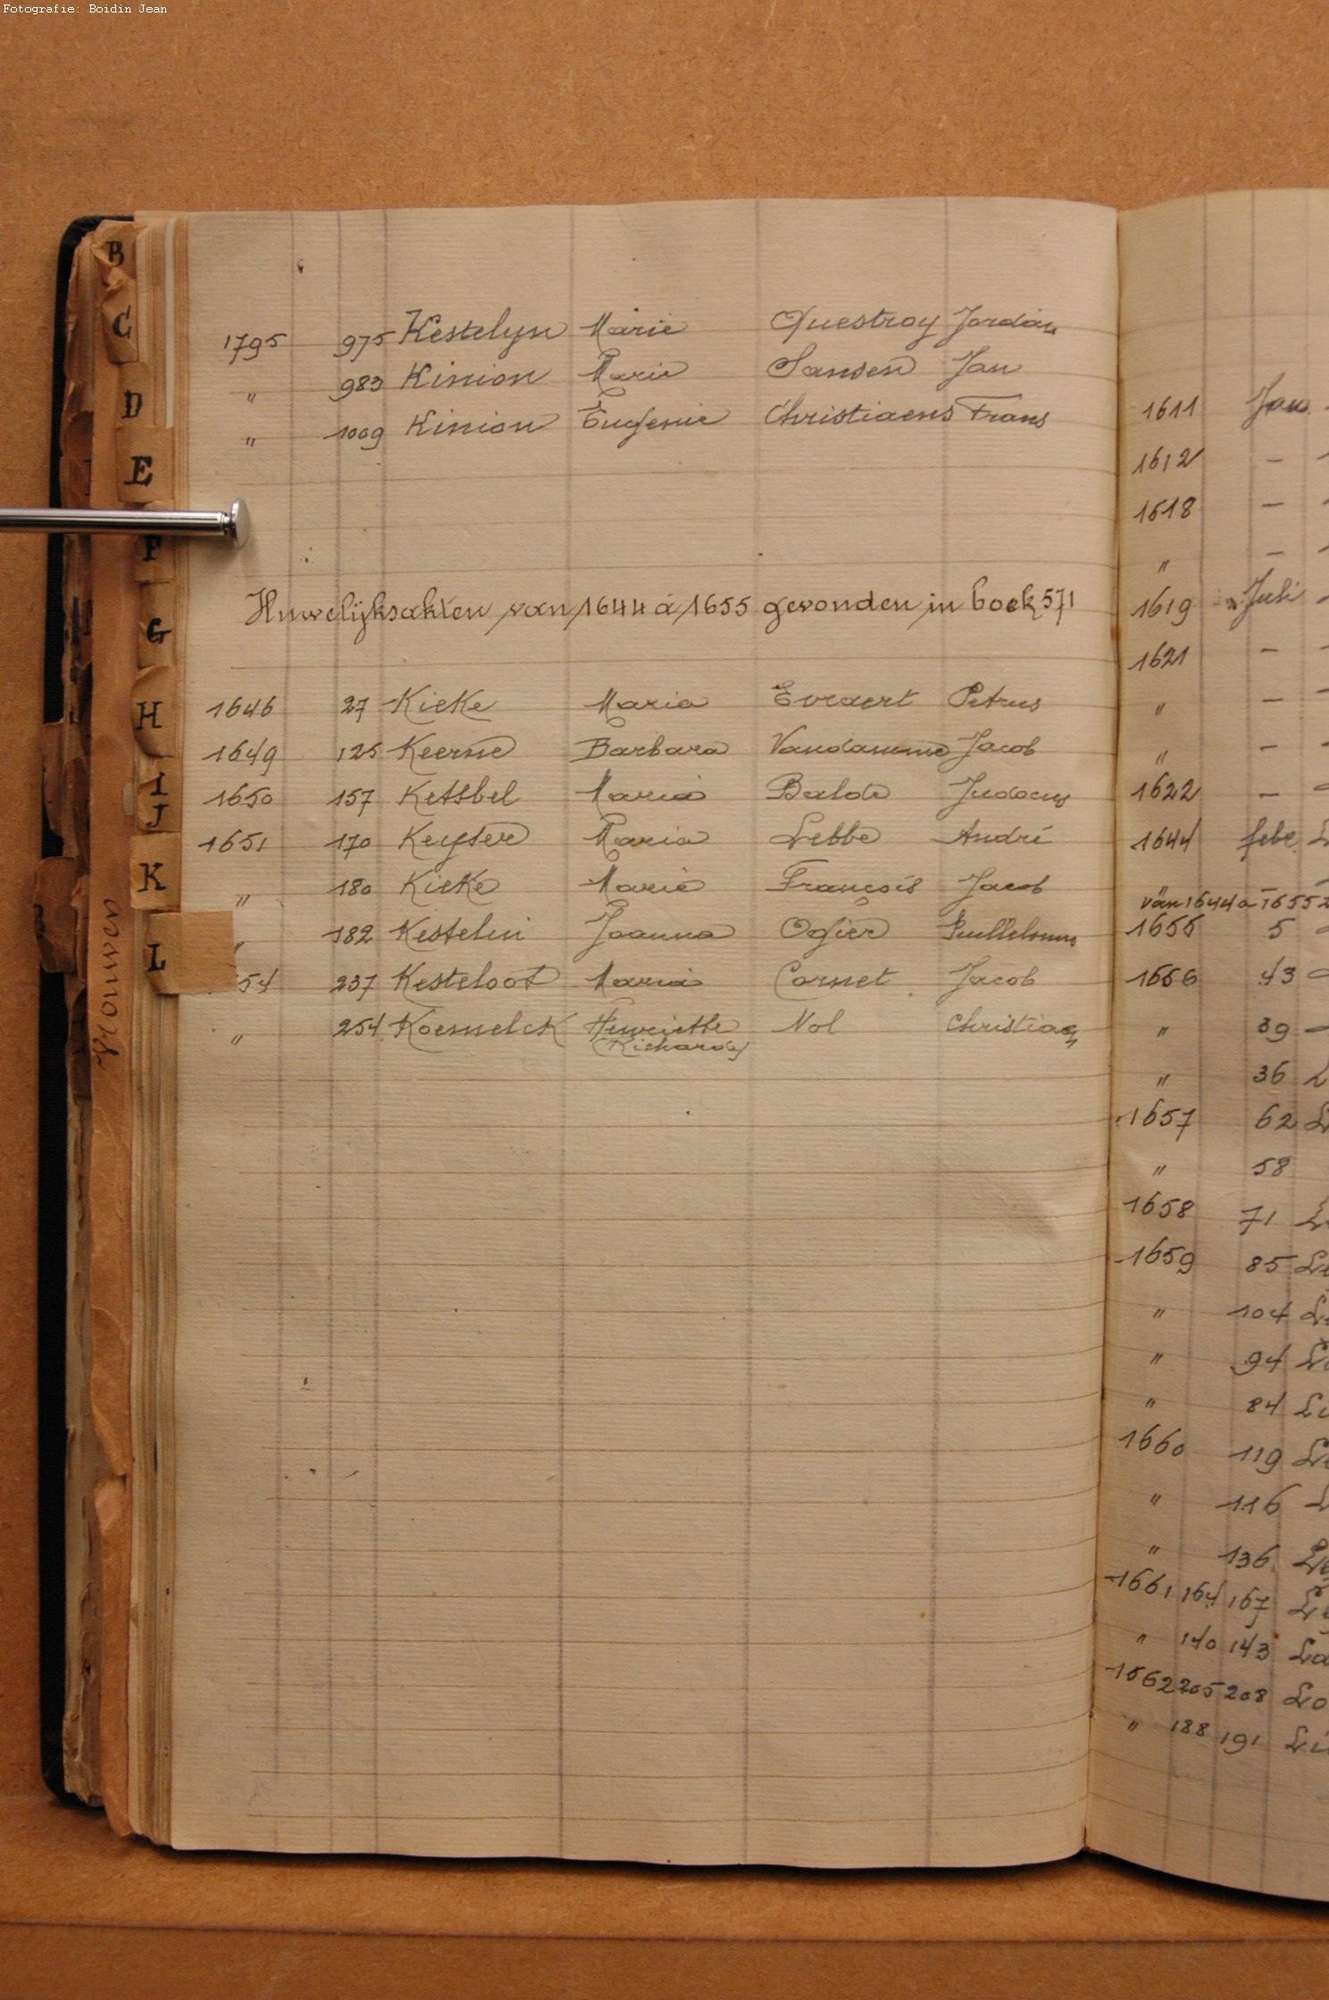 Fotografie: Boidin Jean
B
C
D
E
F
G
H
I
J
K
L
Vrouwen
1795 975 Kestelyn Marie Questroy Jordan
" 983 Kinion Marie Sansen Jan
" 1009 Kinion Eugenie Christiaens Frans
Huwelijksakten van 1644 à 1655 gevonden in boek 571
1646 27 Kieke Maria Evraert Petrus
1649 125 Keerne Barbara Vandamme Jacob
1650 157 Ketsbel Maria Balde Judocus
1651 170 Keyser Maria Lebbe André
" 180 Kieke Marie François Jacob
" 182 Kestelin Joanna Ogier
54 237 Kesteloot Maria Cornet Jacob
" 254 Koemelck Henriette Nol Christiaen
1611 Jan
1612 –
1618 –
" –
1619 Juli
1621 –
" –
" –
1622 –
1644 febr.
van 1644 a 1655
1655 5
1656 43
" 39
" 36
1657 62
" 58
1658 71
1659 85
" 104
" 94
" 84
1660 119
" 116
" 136
1661 164 167
" 140 143
1662 205 208
" 188 191